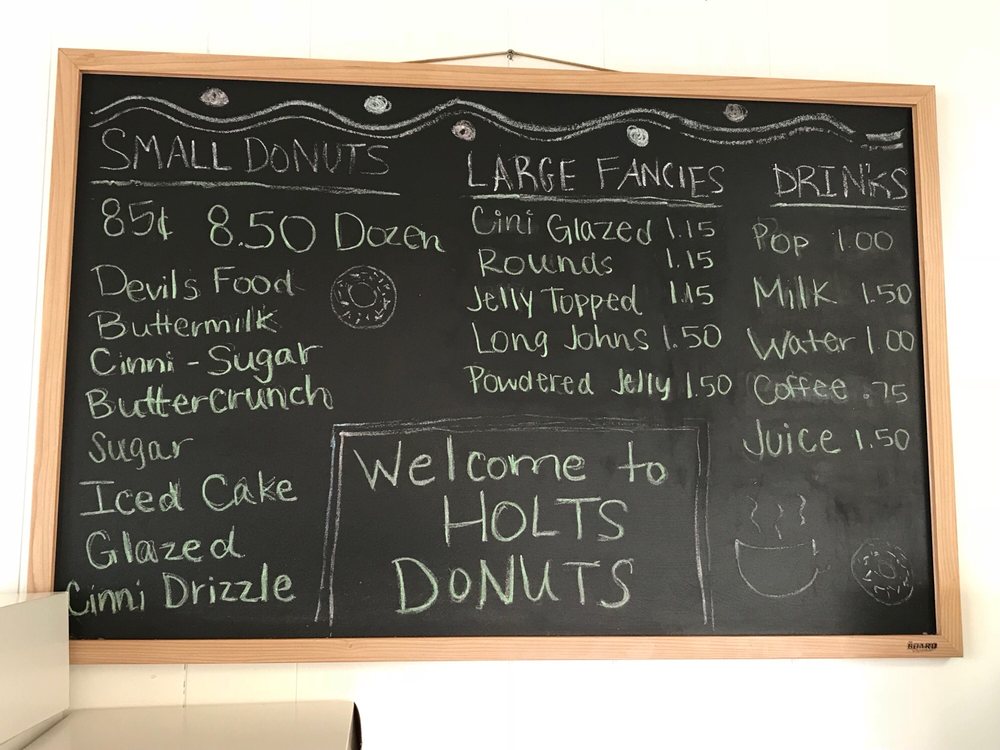 SMALL DONUTS
85¢ 8.50 Dozen
Devils Food
Buttermilk
Cinni - Sugar
Buttercrunch
Sugar
Iced Cake
Glazed
Cinni Drizzle
LARGE FANCIES
Cini Glazed 1.15
Rounds 1.15
Jelly Topped 1.15
Long Johns 1.50
Powdered Jelly 1.50
DRINKS
Pop 1.00
Milk 1.50
Water 1.00
Coffee .75
Juice 1.50
Welcome to
HOLTS
DONUTS
BOARD